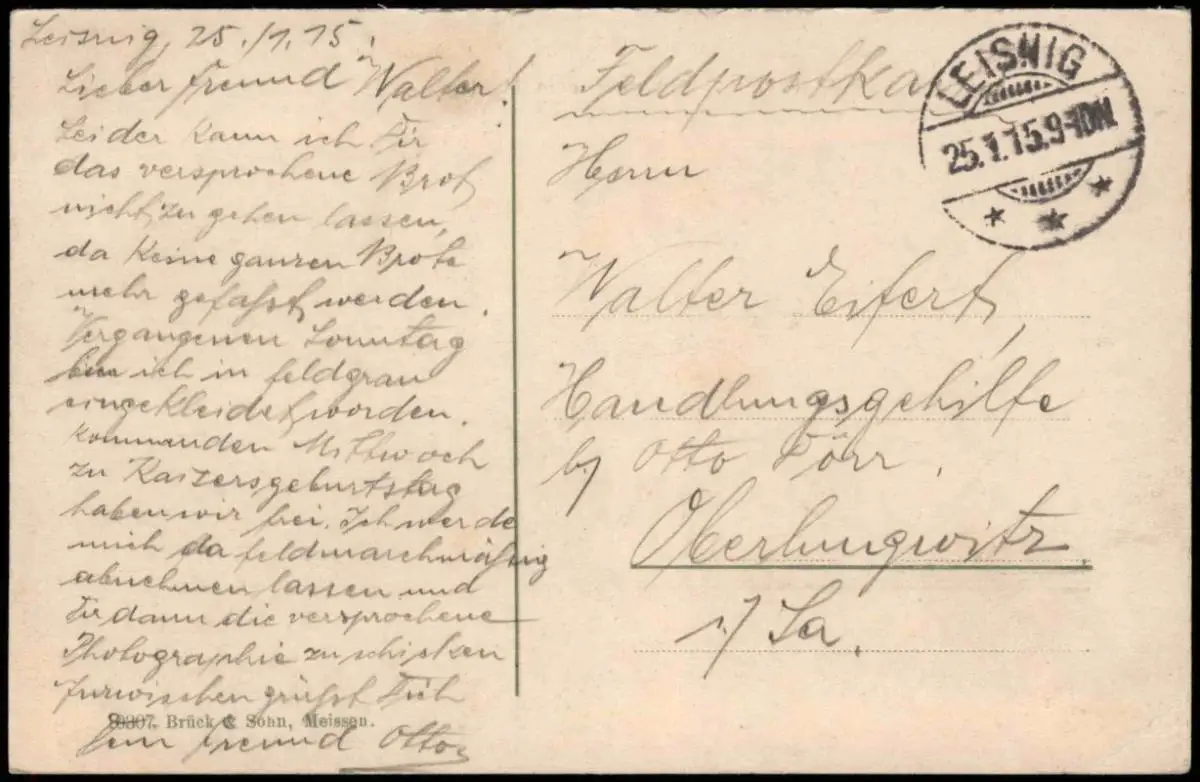 Leisnig, 25./1.15.
Lieber Freund Walter!
Leider kann ich Dir
das versprochene Brot
nicht zu gehen lassen,
da keine ganzen Brote
mehr gefaßt werden.
Vergangenen Sonntag
bin ich in feldgrau
eingekleidet worden.
Kommanden Mittwoch
zu Kaisersgeburtstag
haben wir frei. Ich werde
mich da feldmarschmäßig
abnehmen lassen und
Dir dann die versprochene
Photographie zu schicken
Inzwischen grüßt Dich
Dein Freund Otto
39307. Brück & Sohn, Meissen.
Feldpostka
LEISNIG
25.1.15.9-10N.
Herrn
Walter Eifert,
Handlungsgehilfe
b/ Otto Dörr.
Oberlungwitz
i/ Sa.